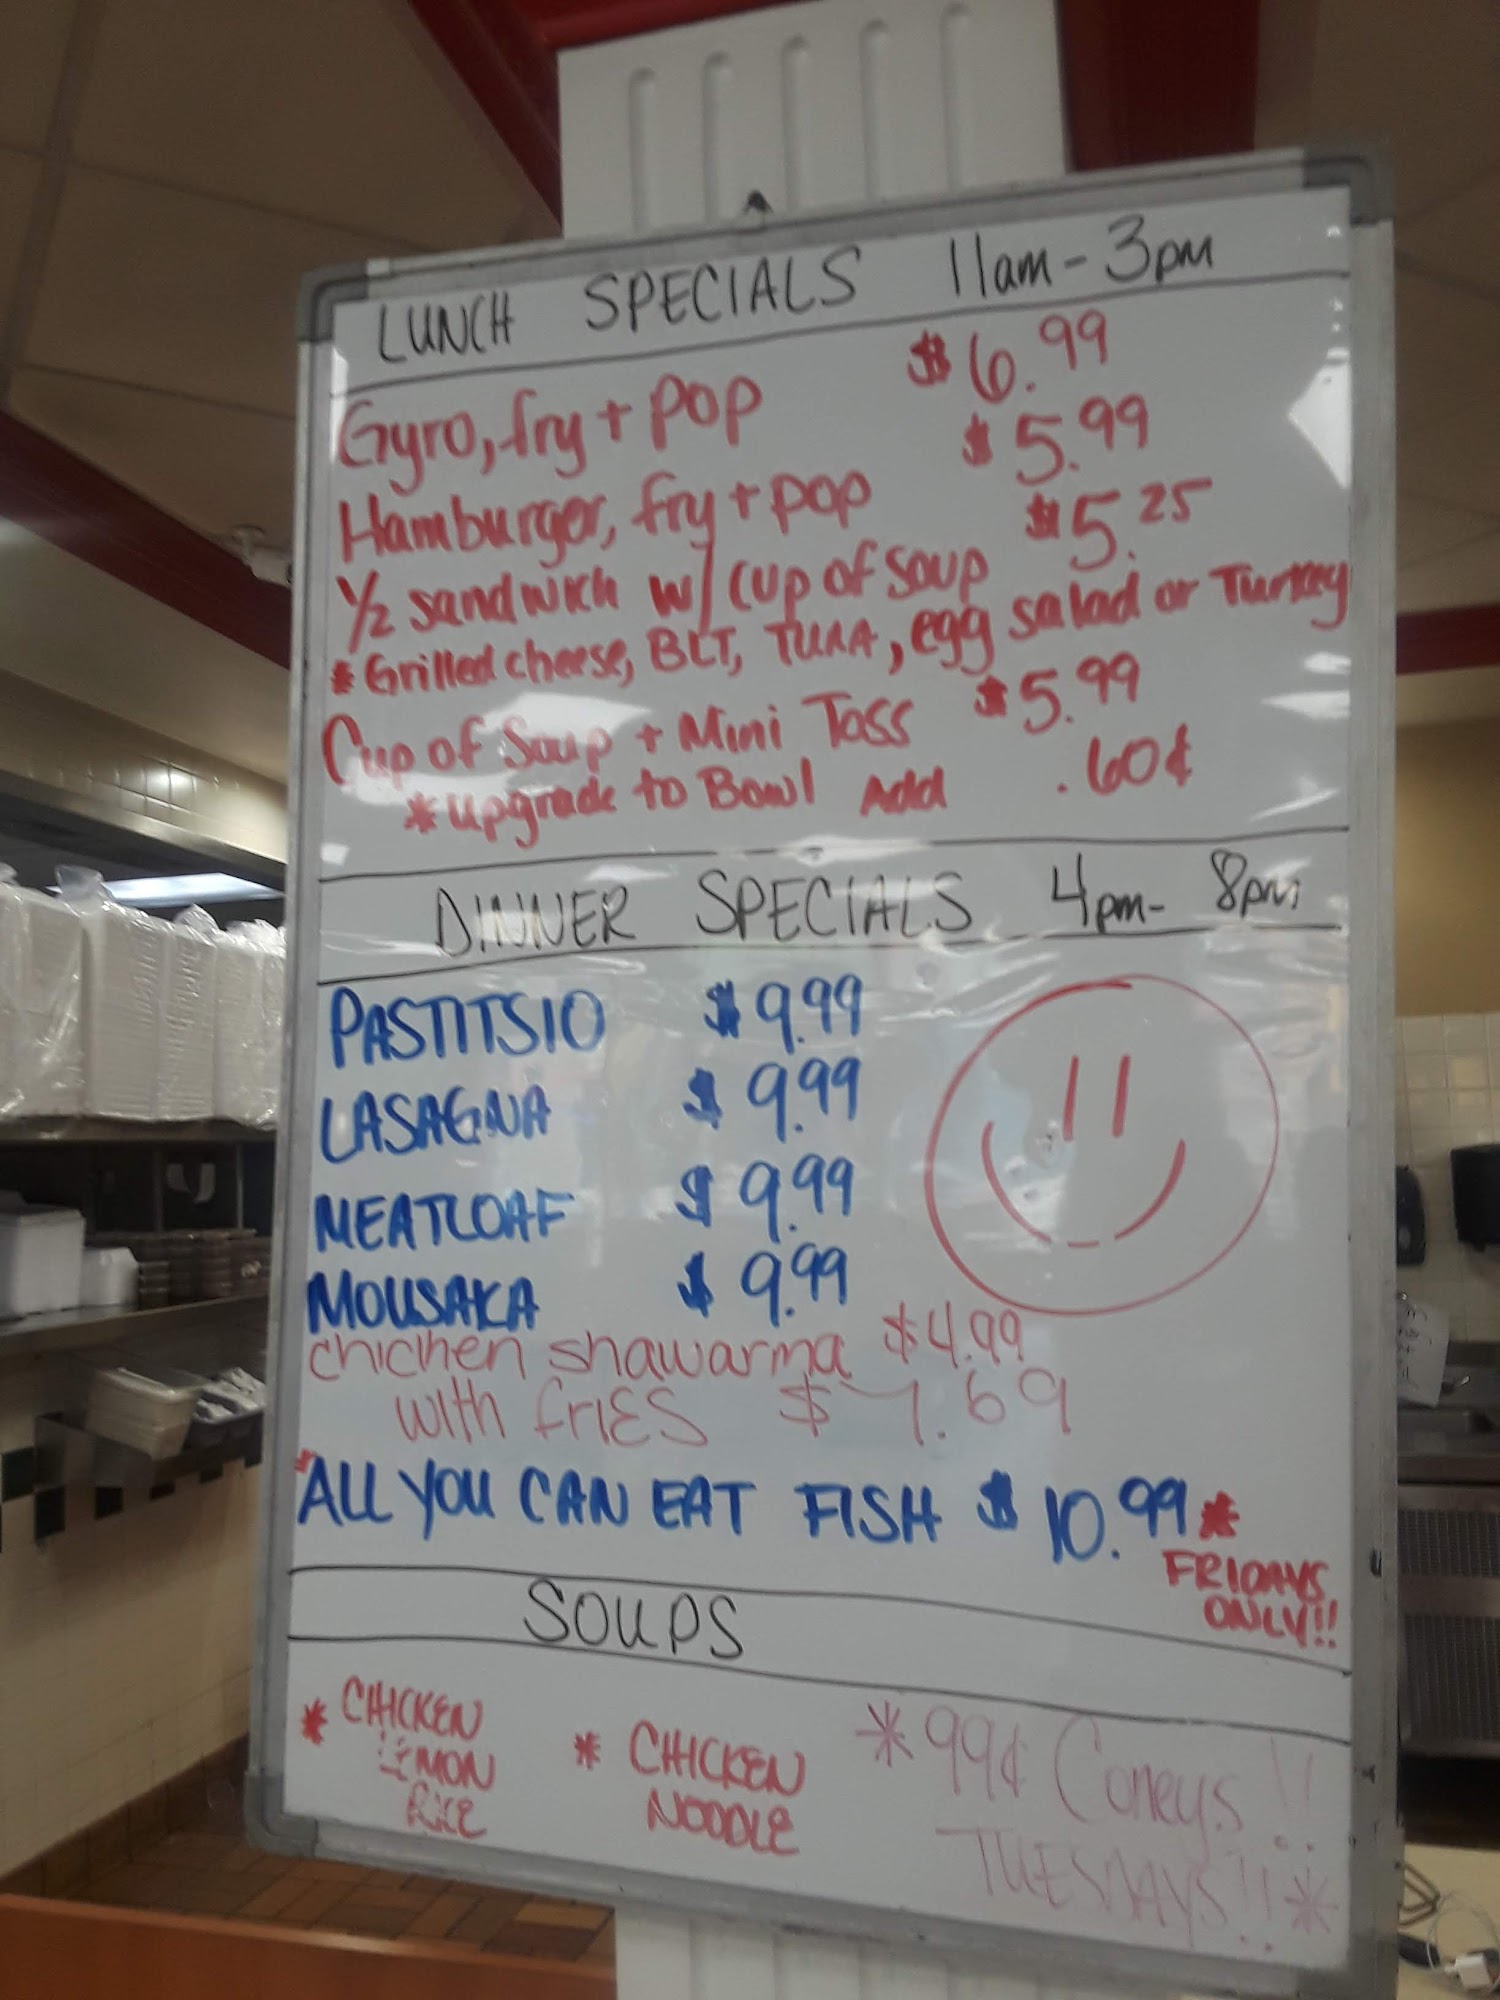 LUNCH SPECIALS 11am-3pm
Gyro, fry + pop $6.99
Hamburger, fry + pop $5.99
1/2 sandwich w/ cup of soup $5.25
* Grilled cheese, BLT, TUNA, egg salad or Turkey
Cup of Soup + Mini Toss $5.99
* Upgrade to Bowl Add .60¢
DINNER SPECIALS 4pm- 8pm
PASTITSIO $9.99
LASAGNA $9.99
MEATLOAF $9.99
MOUSAKA $9.99
chicken shawarma $4.99
with friEs $7.69
*ALL YOU CAN EAT FISH $10.99*
FRIDAYS
ONLY!!
SOUPS
* CHICKEN
LEMON
RICE
* CHICKEN
NOODLE
*99¢ Coneys!!
TUESDAYS!!*